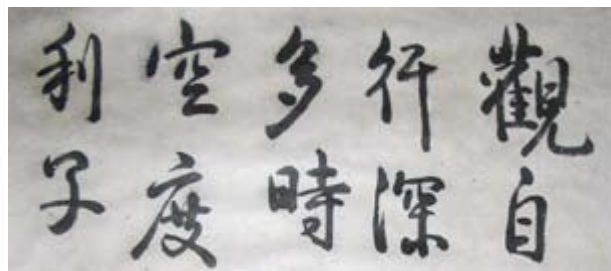 觀自
行深
多時
空度
利子